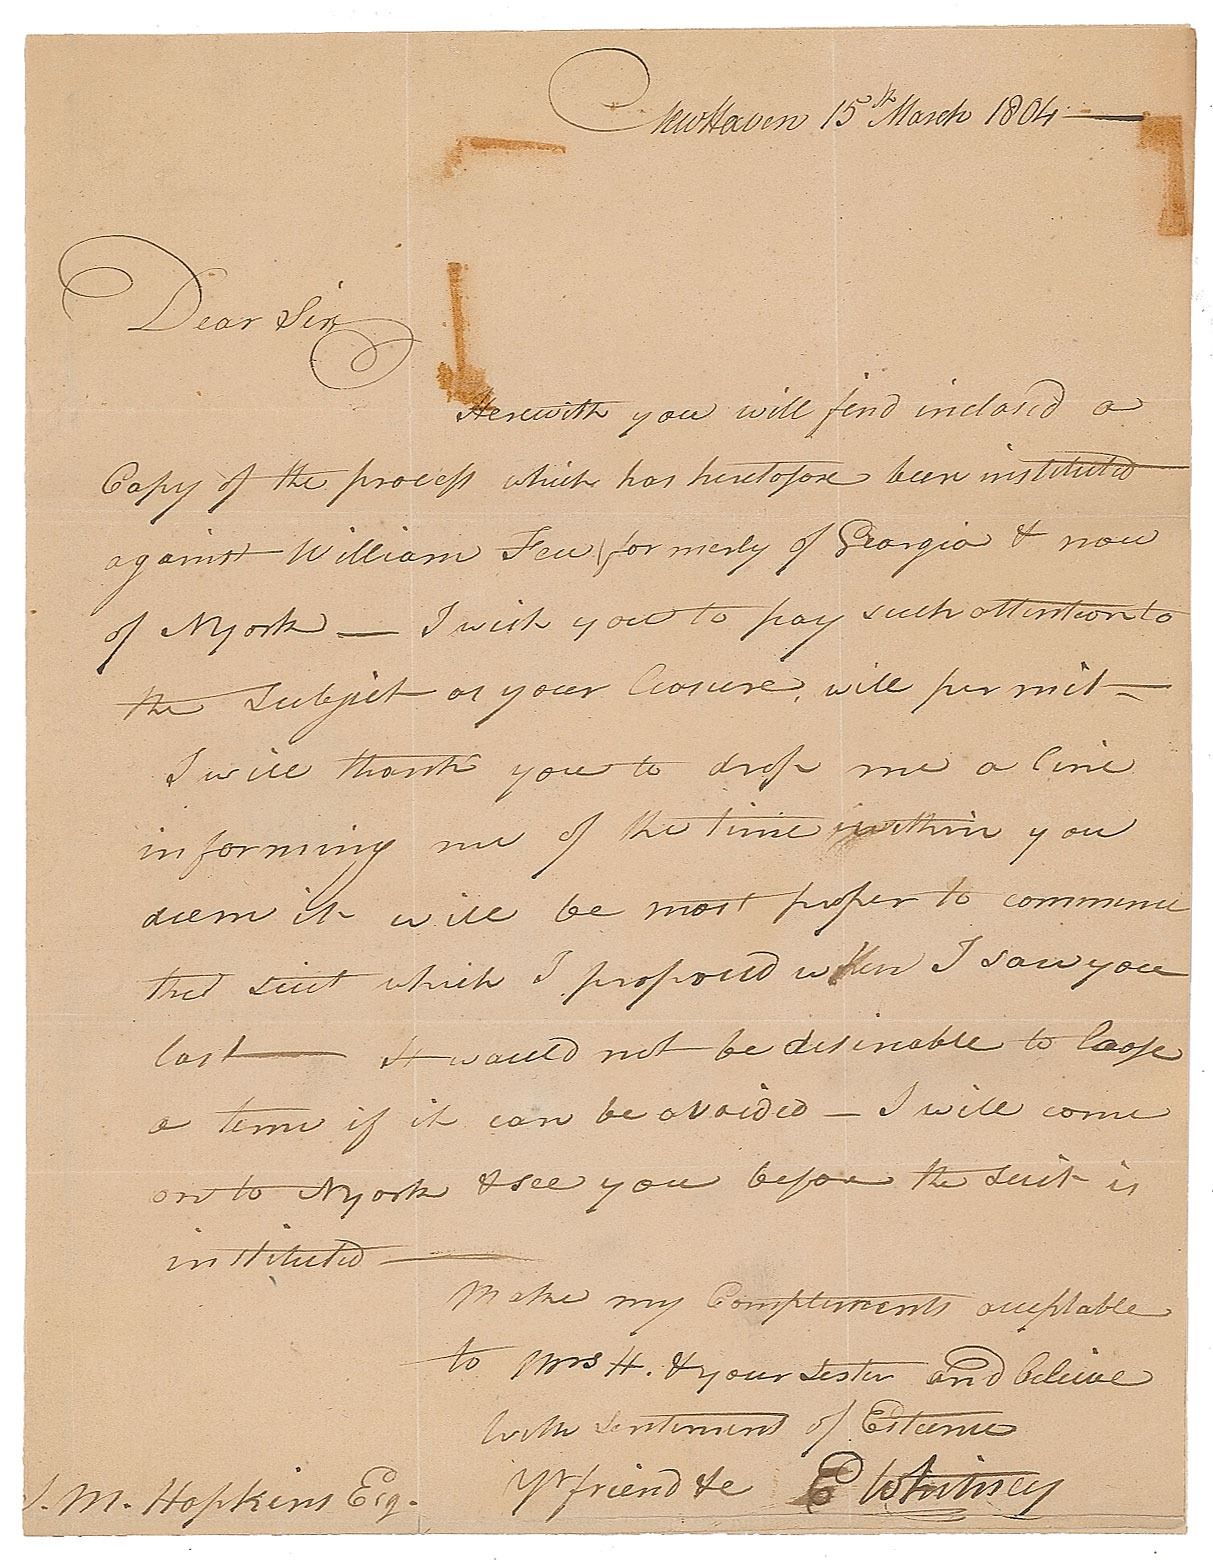 NewHaven 15th March 1804 —
Dear Sir
Herewith you will find inclosed a
Copy of the process which has heretofore been instituted
against William Few formerly of Georgia & now
of NYork — I wish you to pay such attention to
the Subject as your leasure, will permit —
I will thank you to drop me a line
informing me of the time within you
deem it will be most proper to commence
the suit which I proposed when I saw you
last — It would not be desireable to loose
a term if it can be avoided — I will come
on to NYork & see you before the suit is
instituted —
Make my Compliments acceptable
to Mrs H. & your Sister and believe
with sentiments of Esteeme
Yr friend &c E Whitney
S. M. Hopkins Esq.